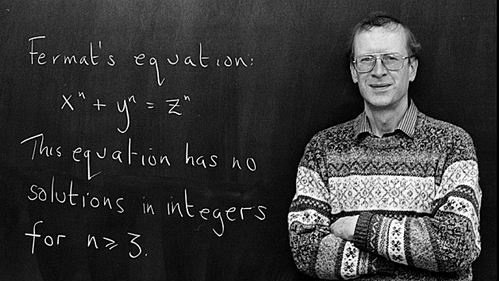 Fermat's equation:
xⁿ + yⁿ = zⁿ
This equation has no
solutions in integers
for n ⩾ 3.